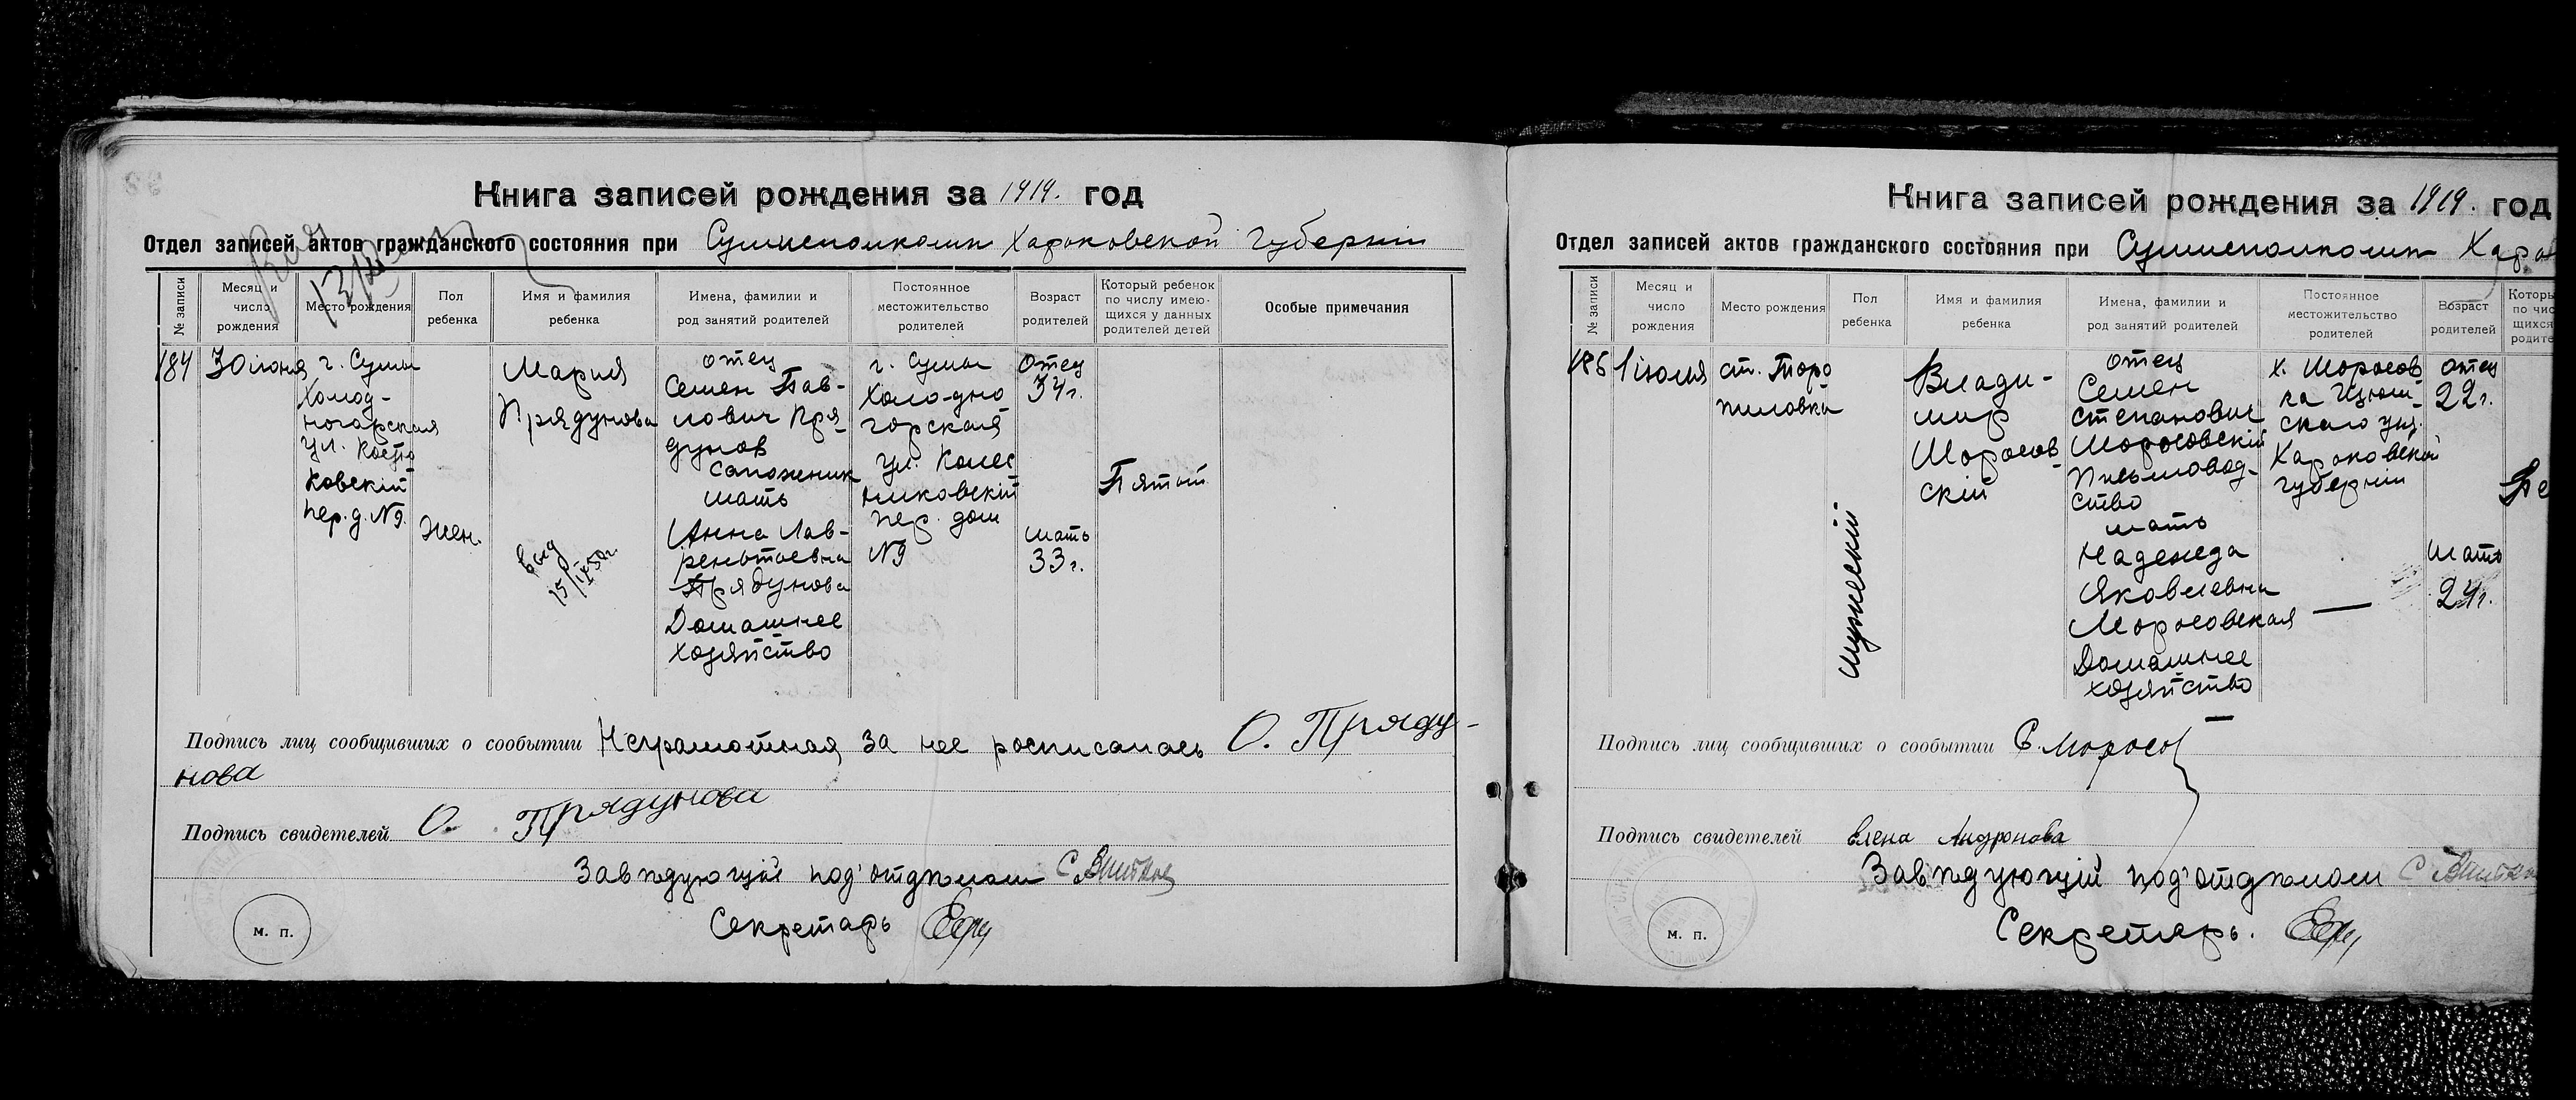 Книга записей рождения за 1919. год
Отдел записей актов гражданского состояния при Сумисполкомъ Харьковской Губернiи
№ записи
Месяц и число рождения
Место рождения
Пол ребенка
Имя и фамилия ребенка
Имена, фамилии и род занятий родителей
Постоянное местожительство родителей
Возраст родителей
Который ребенок по числу имеющихся у данных родителей детей
Особые примечания
184
30 iюня
г. Сумы
Холод-
ногорская
ул.
ковскiй
пер. д. №9.
Жен.
Мария
Прядунова
выд
15/IX 50г.
отец
Семен Пав-
лович Пря-
дунов
сапожник
мать
Анна Лав-
рентьевна
Прядунова
Домашнее
хозяйство
г. Сумы
Холо-дно
горская
ул. Колес
никовскiй
пер. дом
№9
Отец
34г.
мать
33г.
Пятый
Подпись лиц сообщивших о сообытии Неграмотная за нее росписалась О. Пряду-
нова
Подпись свидетелей О. Прядунова
Завѣдующiй под'отдѣлом
Секретарь
м. п.
Книга записей рождения за 1919. год
Отдел записей актов гражданского состояния при Сумисполкомъ Харь
№ записи
Месяц и число рождения
Место рождения
Пол ребенка
Имя и фамилия ребенка
Имена, фамилии и род занятий родителей
Постоянное местожительство родителей
Возраст родителей
185
1 iюля
ст. Торо
пиловка
мужескiй
Влади-
мир
Моросов-
скiй
отец
Семен
Степанович
Моросовскiй
Письмовод-
ство
мать
Надежда
Яковлевна
Моросовская
Домашнее
хозяйство
х. Моросов
ка Изюм-
скаго уѣз.
Харьковской
губернiи
отец
22г.
мать
24г.
Подпись лиц сообщивших о сообытии С. Моросо
Подпись свидетелей Елена Андронова
Завѣдующiй под'отдѣлом
Секретарь.
м. п.